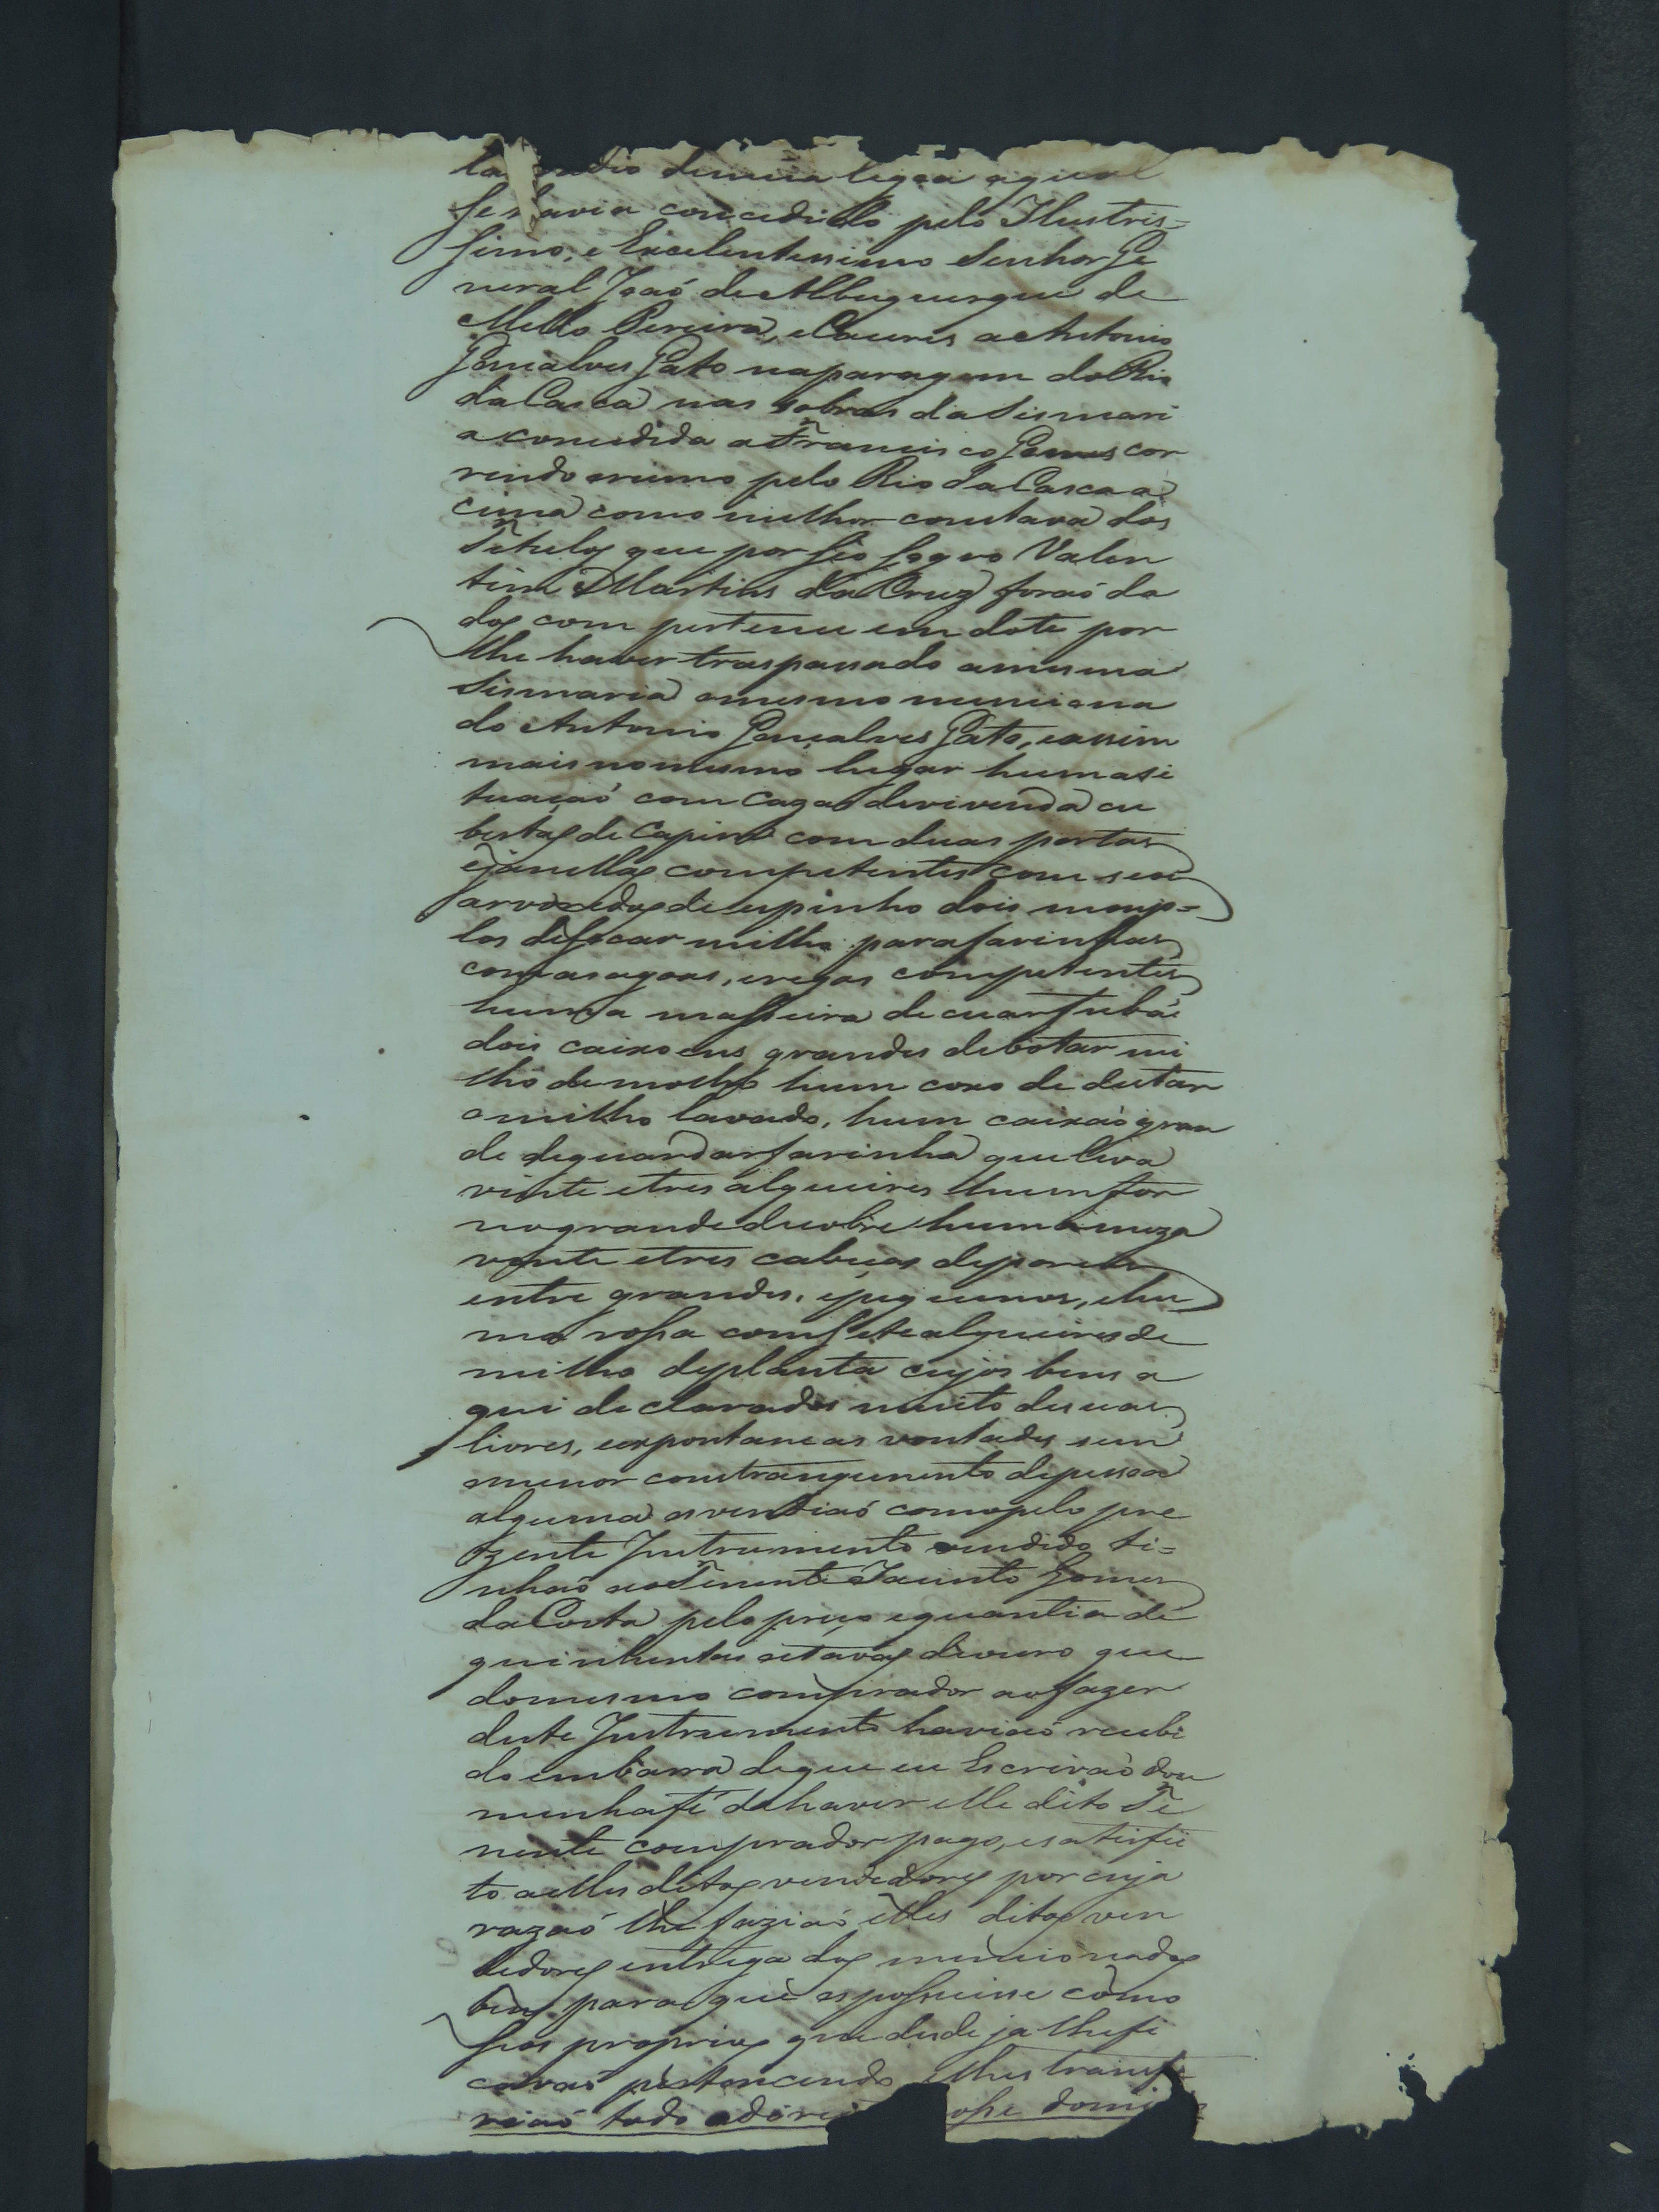 la medio de uma legoa a qual
se havia concedido pelo Ilustris=
simo, e Excelentissimo Senhor Ge
neral Joaó de Albuquerque de
Mello Pereira, e Caceres a Antonio
Gonçalves Gato na paragem do Rio
da Casca nas sobras da Sismari
a concedida a Francisco Gomes cor
rendo rumo pelo Rio da Casca a
cima como milhor constava dos
Titulos que por seo sogro Valen
tim Martins da Cruz foraó da
dos com pertence em dote por
lhe haver traspassado a mesma
Sismaria o mesmo menciona
do Antonio Gonçalves Gato, e assim
mais no mesmo lugar huma si
tuaçaó com cazas de vivenda cu
bertas de Capim com duas portas
e janellas competentes com seos
arvoredos de espinho dois monjo=
los de socar milho para farinhas
com as agoas, e regas competentes
huma masseira de cuar fubá
dois caixoens grandes de botar mi
lho de molho hum coxo de deitar
o milho lavado, hum caixaó gran
de de guardar farinha que leva
vinte e tres alqueires hum for
no grande de cobre huma meza
vinte e tres cabeças de porcos
entre grandes, e pequenos, e hu
ma rossa com sete alqueires de
milho de planta cujos bens a
qui declarados muito de suas
livres, e expontaneas vontades sem
o menor constrangimento de pessoa
alguma os vendiaó como pelo pre
zente Instrumento vendido ti=
nhaó ao Tenente Jacinto Gomes
da Costa pelo preço e quantia de
quinhentas oitavas de ouro que
do mesmo comprador ao fazer
deste Instrumento haviaó recebi
do em barra de que eu Escrivaó dou
minha fé de haver elle dito Te
nente comprador pago, e satisfei
to a elles ditos vendedores por cuja
razaó lhe faziaó elles ditos ven
dedores entrega dos mencionados
bens para que os possuisse como
seos proprios que desde ja lhe fi
cavaó pertencendo elhes transfe
riaó todo odirei osse domi